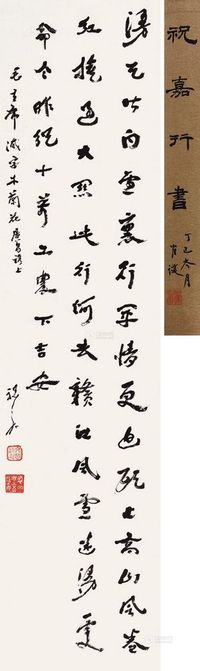 漫天皆白雪裏行軍情更迫頭上高山風卷
紅旗過大關此行何去贛江風雪迷漫處
命令昨頒十萬工農下吉安
毛主席減字木蘭花廣昌路上
祝嘉
祝嘉行書
丁巳冬月